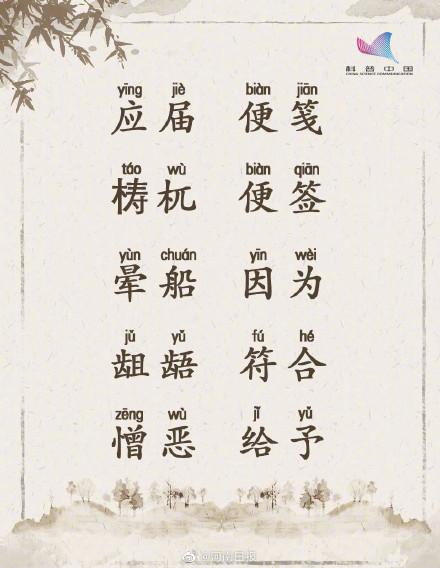 科普中国
CHINA SCIENCE COMMUNICATION
yīng jiè biàn jiān
应届 便笺
táo wù biàn qiān
梼杌 便签
yùn chuán yīn wèi
晕船 因为
jǔ yǔ fú hé
龃龉 符合
zēng wù jǐ yǔ
憎恶 给予
@河南日报